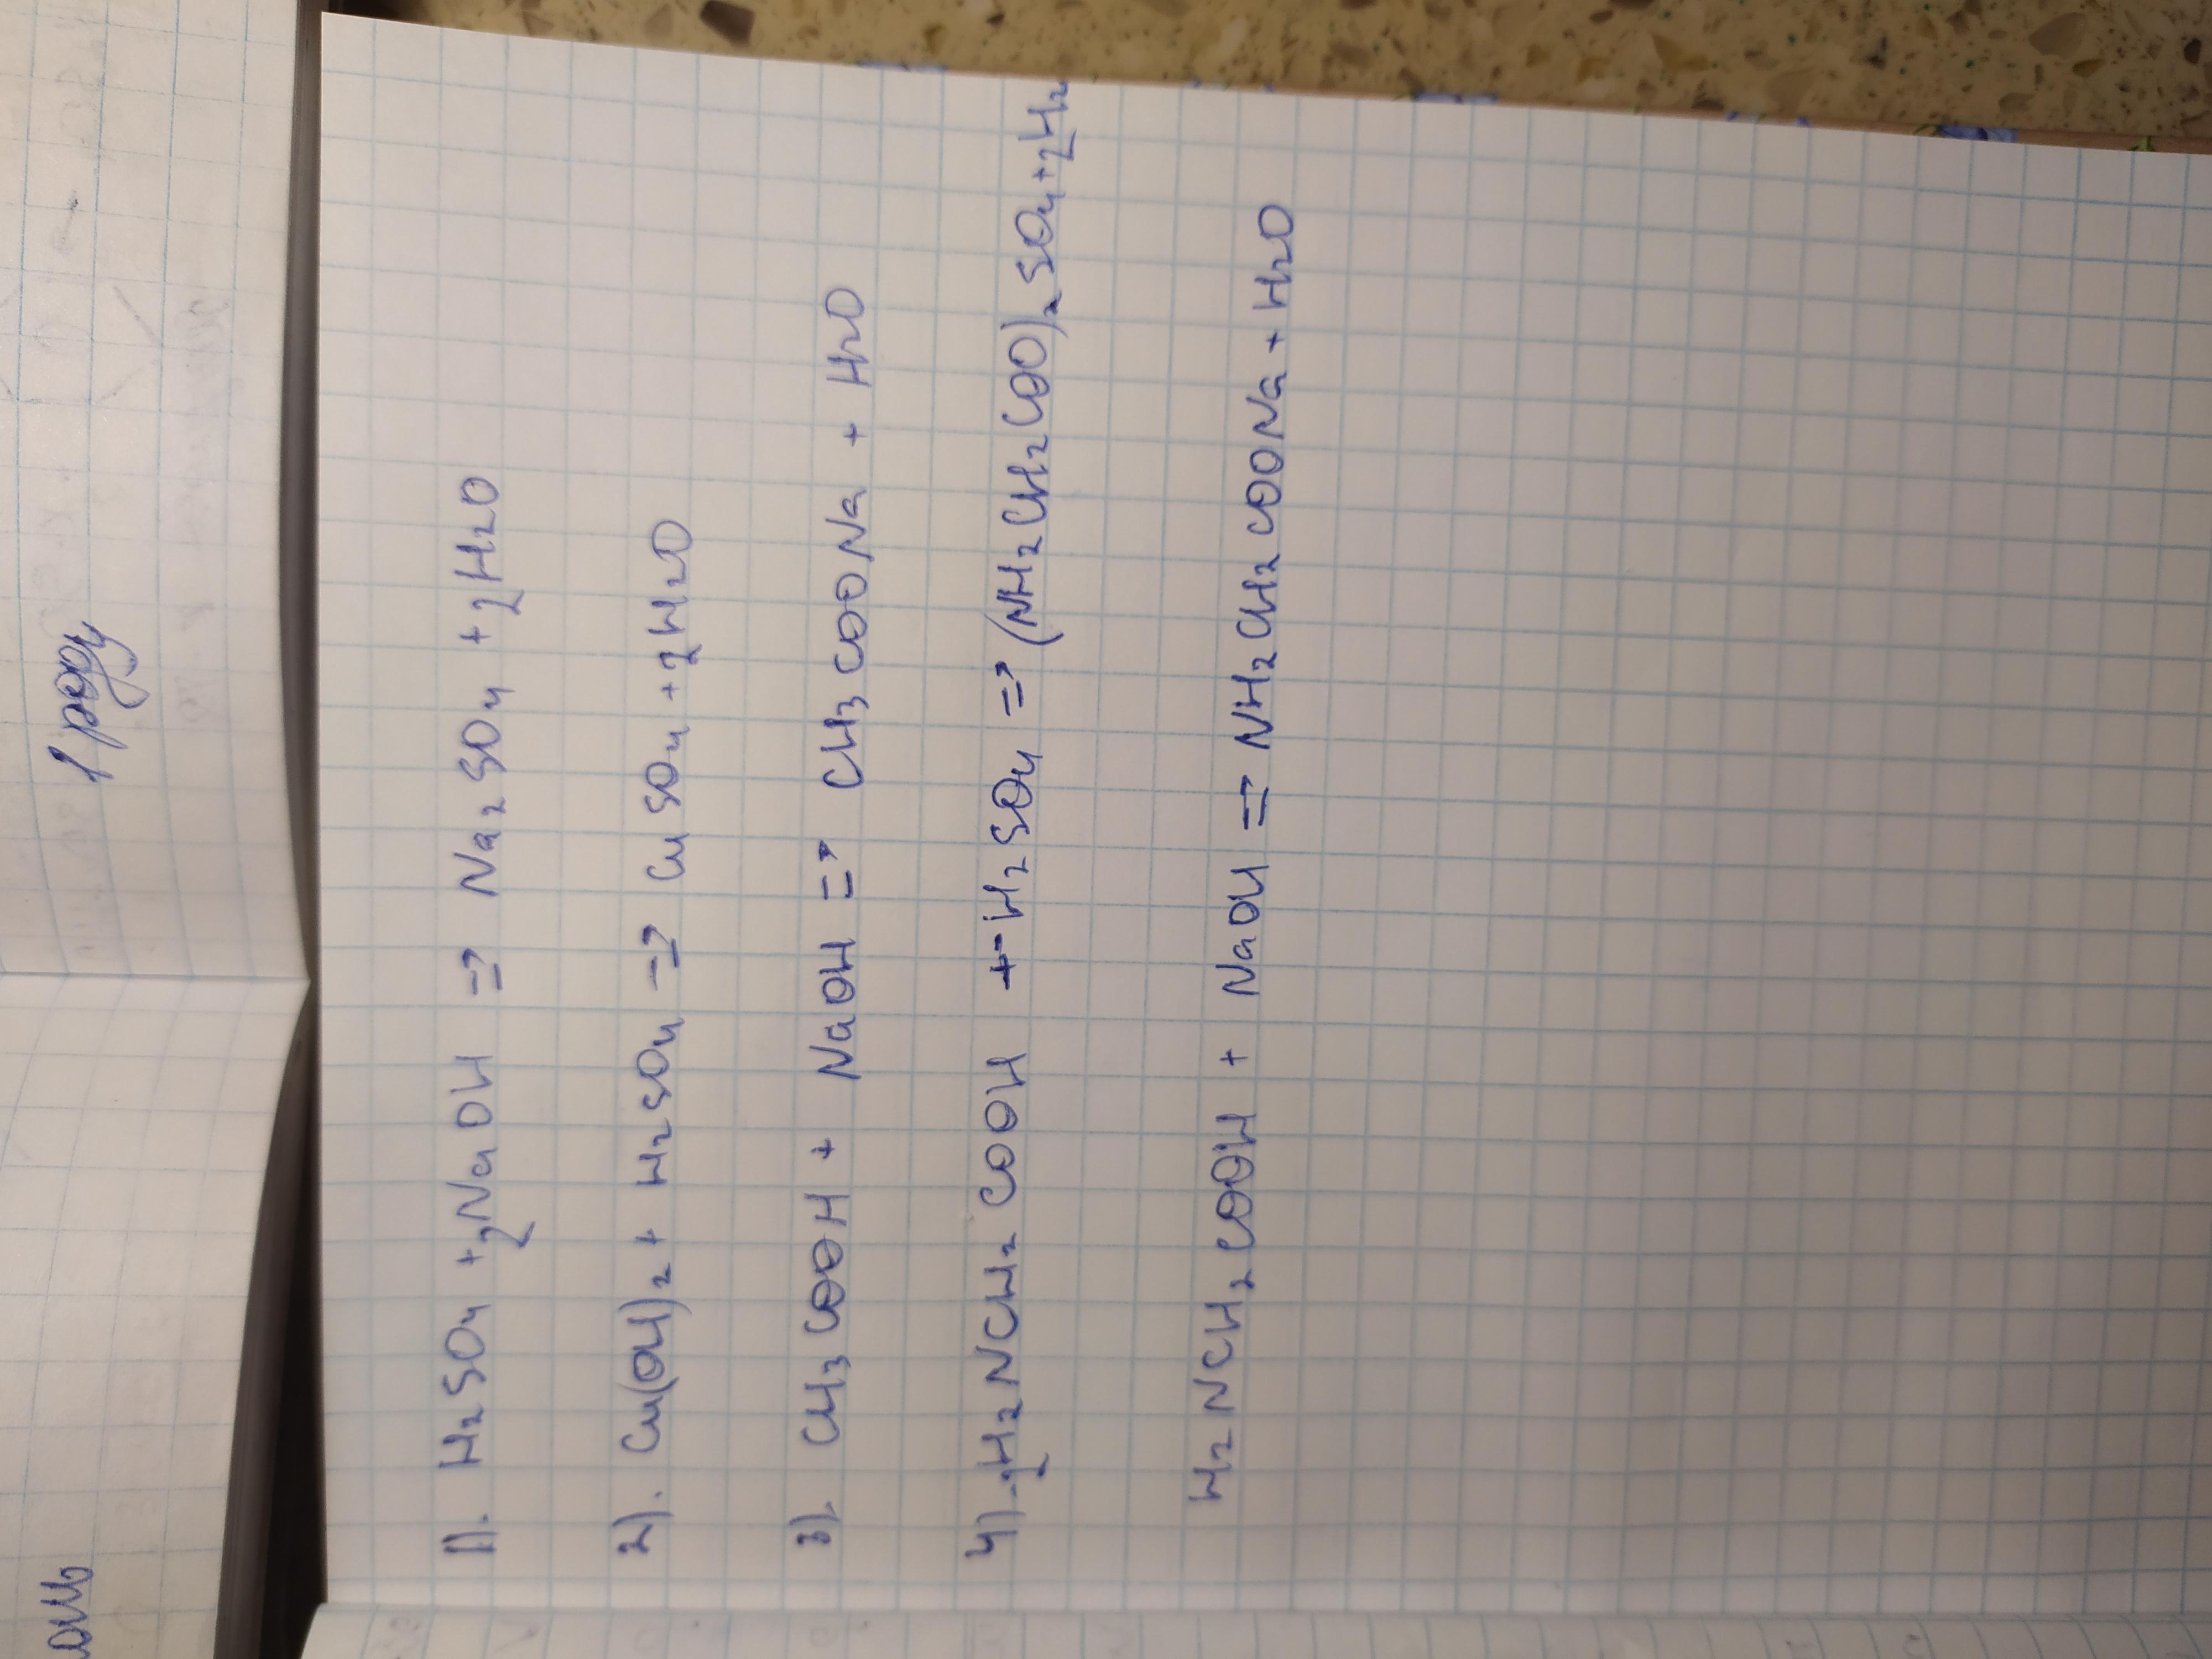 1 роду
1). H₂SO₄ + 2NaOH => Na₂SO₄ + 2H₂O
2). Cu(OH)₂ + H₂SO₄ => CuSO₄ + 2H₂O
3). CH₃COOH + NaOH => CH₃COONa + H₂O
4). 2H₂NCH₂COOH + H₂SO₄ => (NH₂CH₂COO)₂SO₄ + 2H₂
H₂NCH₂COOH + NaOH => NH₂CH₂COONa + H₂O